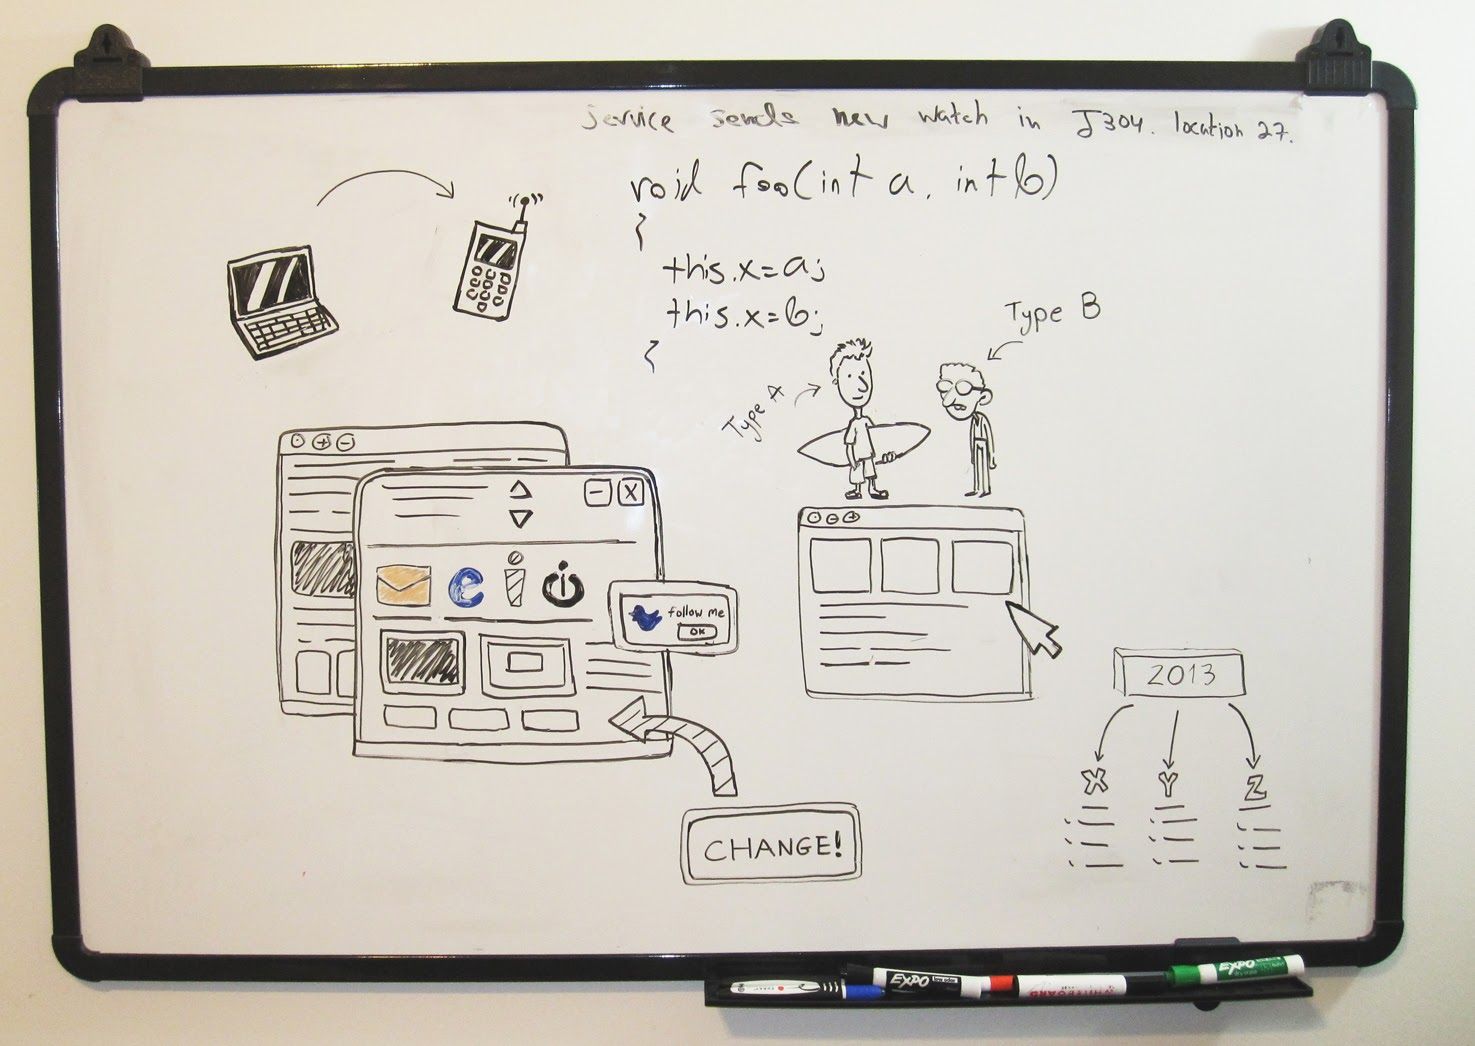 service sends new watch in J304. location 27.
void foo(int a, int b)
{
this.x=a;
this.x=b;
{
Type B
Type A
X
follow me
OK
2013
X Y Z
CHANGE!
EXPO
WHITEBOARD
EXPO